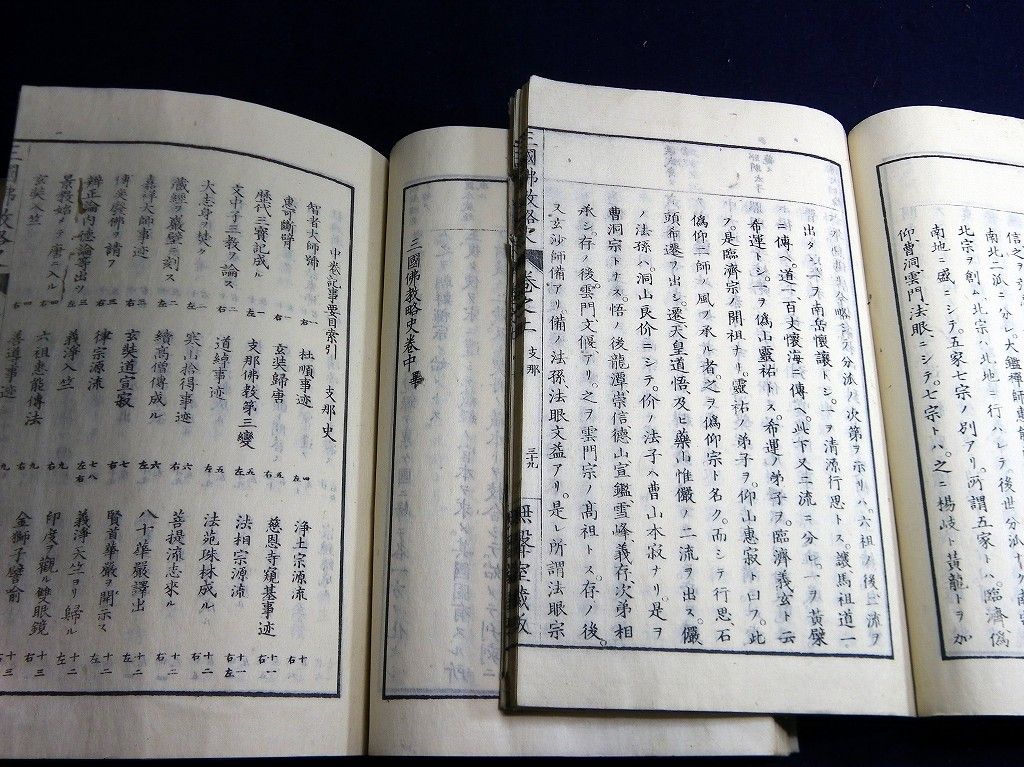 南北二派ニ分レ大鑑禪師慧能
北宗ヲ創ム北宗ハ、北地ニ行ハレテ後世分派
南地ニ盛ニシテ。五家七宗ノ別アリ。所謂五家トハ。臨濟潙
仰曹洞雲門法眼、ニシテ。七宗トハ。之ニ楊岐ト黃龍トヲ加
シヲ分派ノ次第ヲ示リハ。六祖ノ後二流ヲ
出ダシ。一ヲ南岳懷讓トシ。一ヲ清源行思トス。讓馬祖道一
ニ傳ヘ。道一百丈懷海ニ傳ヘ。此下又二流ニ分レ。一ヲ黃檗
希運トシ。一ヲ潙山靈祐トス。希運ノ弟子ヲ。臨濟義玄ト云
フ。是臨濟宗ノ開祖ナリ。靈祐ノ弟子ヲ。仰山惠寂ト曰フ。此
潙仰二師ノ風ヲ承ル者之ヲ潙仰宗ト名ク。而シテ行思、石
頭希遷ヲ出シ。遷、天皇道悟、及ヒ藥山惟儼ノ二流ヲ出ス。儼
ノ法孫ハ、洞山良价ニシテ。价ノ法子ヘ曹山本寂ナリ。是ヲ
曹洞宗トナス。悟ノ後、龍潭崇信、德山宣鑑、雪峰義存、次弟相
承シ。存ノ後。雲門文偃アリ。之ヲ雲門宗ノ髙祖トス。存ノ後。
又玄沙師備アリ。備ノ法孫、法眼文益アリ。是レ所謂法眼宗
三國佛敎略史 卷之上 支那 三十九 無聲室藏版
三國佛敎略史卷中畢
中卷記事要目索引 支那史
智者大師歸 一右
惠可斷臂 一右
歷代三寶記成ル 一左
文中子三敎ヲ論ス 一左
大志身ヲ焚ク 二右
藏經ヲ巖壁ニ刻ス 二左
嘉祥大師事迹 二左
傅奕廢佛ヲ請フ 三右
辨正論內德論等出ツ 三左
景敎始メテ唐ニ入ル 四右
玄奘入竺 四右
杜順事迹 四右
玄奘歸唐 五右
支那佛敎第三變 五左
道綽事迹 五左
寒山拾得事迹 六右
續高僧傳成ル 六左
玄奘道宣寂 七右
律宗源流 七左
義淨入竺 九右
六祖惠能傳法 九右
善導事迹 九左
淨土宗源流 十右
慈恩寺窺基事迹 十一右
法相宗源流 十一左
法苑珠林成ル 十二左
菩提流志來ル 十二右
八十華嚴譯出 十二左
賢首華嚴ヲ開示ス
義淨天竺ヨリ歸ル
印度ヲ觀ル雙眼鏡
金獅子譬喻 十三右